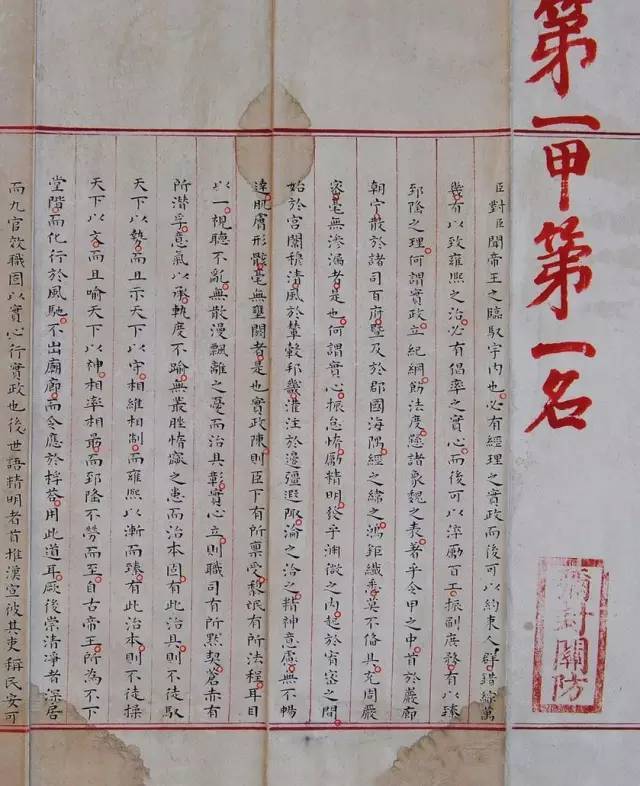 第一甲第一名
彌封關防
臣對臣聞帝王之臨馭宇內也必有經理之實政而後可以約束人群錯綜萬
幾有以致雍熙之治必有倡率之實心而後可以淬勵百工振刷庶務有以臻
郅隆之理何謂實政立紀綱飭法度懸諸象魏之表著乎令甲之中首於巖廊
朝宁散於諸司百府暨及於郡國海隅經之緯之鴻鉅纖悉莫不備具充周嚴
密毫無滲漏者是也何謂實心振怠惰勵精明發乎淵微之內起於宥密之間
始於宮闈穆清風於輦轂邦畿灌注於邊疆遐陬淪之洽之精神意慮無不暢
達肌膚形骸毫無壅閼者是也實政陳則臣下有所稟受黎氓有所法程耳目
以一視聽不亂無散漫飄離之憂而治具彰實心立則職司有所默契蒼赤有
所潛孚意氣以承軌度不踰無叢脞惰窳之患而治本固有此治具則不徒馭
天下以勢而且示天下以守相維相制而雍熙以漸而臻有此治本則不徒操
天下以文而且喻天下以神相率相勗而郅隆不勞而至自古帝王所為不下
堂階而化行於風馳不出廟廊而令應於桴荅用此道耳厥後崇清淨者深居
而九官效職固以實心行實政也後世語精明者首推漢宣彼其吏稱民安可